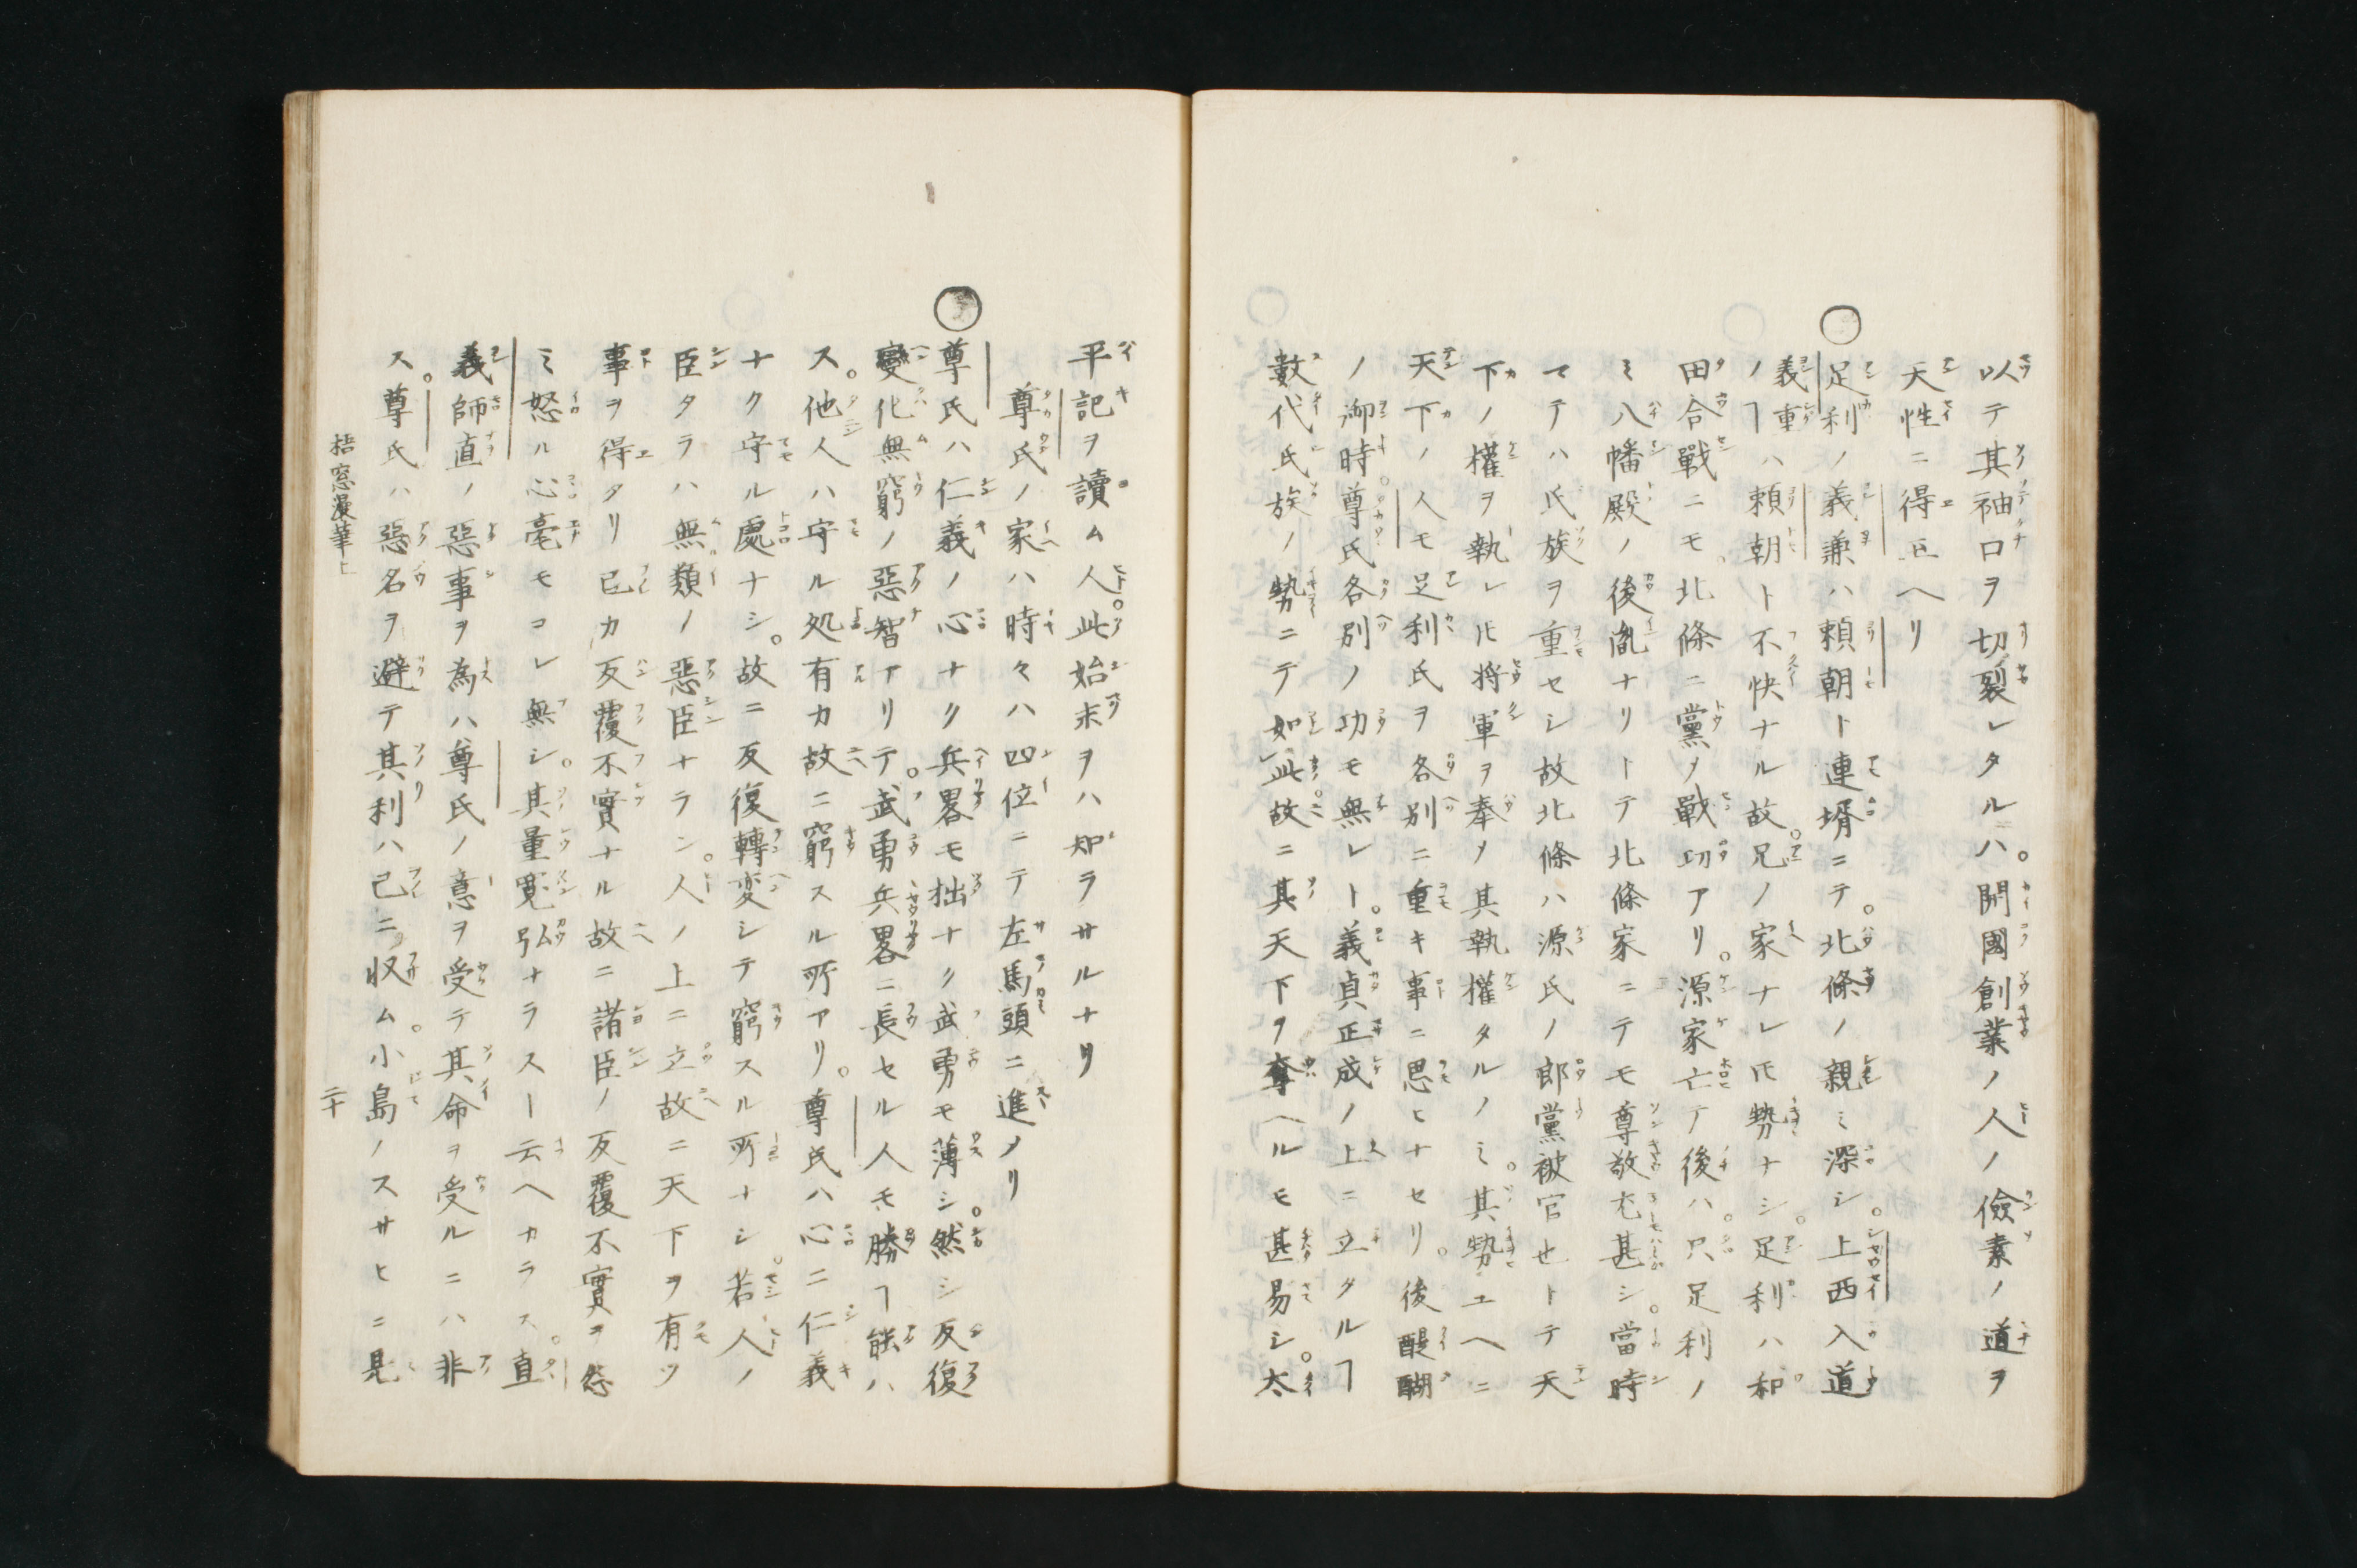 以テ其袖口ヲ切裂レタルハ。開國創業ノ人ノ儉素ノ道ヲ
天性ニ得玉ヘリ
○足利ノ義兼ハ頼朝ト連壻ニテ。北條ノ親ミ深シ。上西入道
義重ハ頼朝ト不快ナル故。兄ノ家ナレ𪜈勢ナシ。足利ハ和
田合戰ニモ。北條ニ黨ノ戰功アリ。源家亡テ後ハ。只足利ノ
ミ八幡殿ノ後胤ナリトテ北條家ニテモ尊敬尤甚シ。當時
マテハ氏族ヲ重セシ故北條ハ源氏ノ郎黨被官也トテ天
下ノ權ヲ執レ𪜈将軍ヲ奉ノ其執權タルノミ。其勢ユヘニ
天下ノ人モ足利氏ヲ各別ニ重キ事ニ思ヒナセリ。後醍醐
ノ御時。尊氏各別ノ功モ無レト。義貞正成ノ上ニ立タルヿ
數代氏族ノ勢ニテ如此。故ニ其天下ヲ奪ヘルモ甚易シ。太
平記ヲ讀ム人。此始末ヲハ知ラサルナリ
尊氏ノ家ハ時々ハ四位ニテ左馬頭ニ進ノリ
○尊氏ハ仁義ノ心ナク兵畧モ拙ナク武勇モ薄シ。然シ反復
變化無窮ノ惡智アリテ。武勇兵畧ニ長セル人モ勝ヿ能ハ
ス。他人ハ守ル処有カ故ニ窮スル所アリ。尊氏ハ心ニ仁義
ナク守ル處ナシ。故ニ反復轉変シテ窮スル所ナシ。若人ノ
臣タラハ無類ノ惡臣ナラン。人ノ上ニ立故ニ天下ヲ有ツ
事ヲ得タリ已カ反覆不實ナル故ニ諸臣ノ反覆不實ヲ怨
ミ怒ル心毫モコレ無シ。其量寛弘ナラスト云ヘカラス。直
義師直ノ惡事ヲ為ハ尊氏ノ意ヲ受テ其命ヲ受ルニハ非
ス。尊氏ハ惡名ヲ避テ其利ハ己ニ収ム。小島ノスサヒニ見
梧窓漫筆上
二十